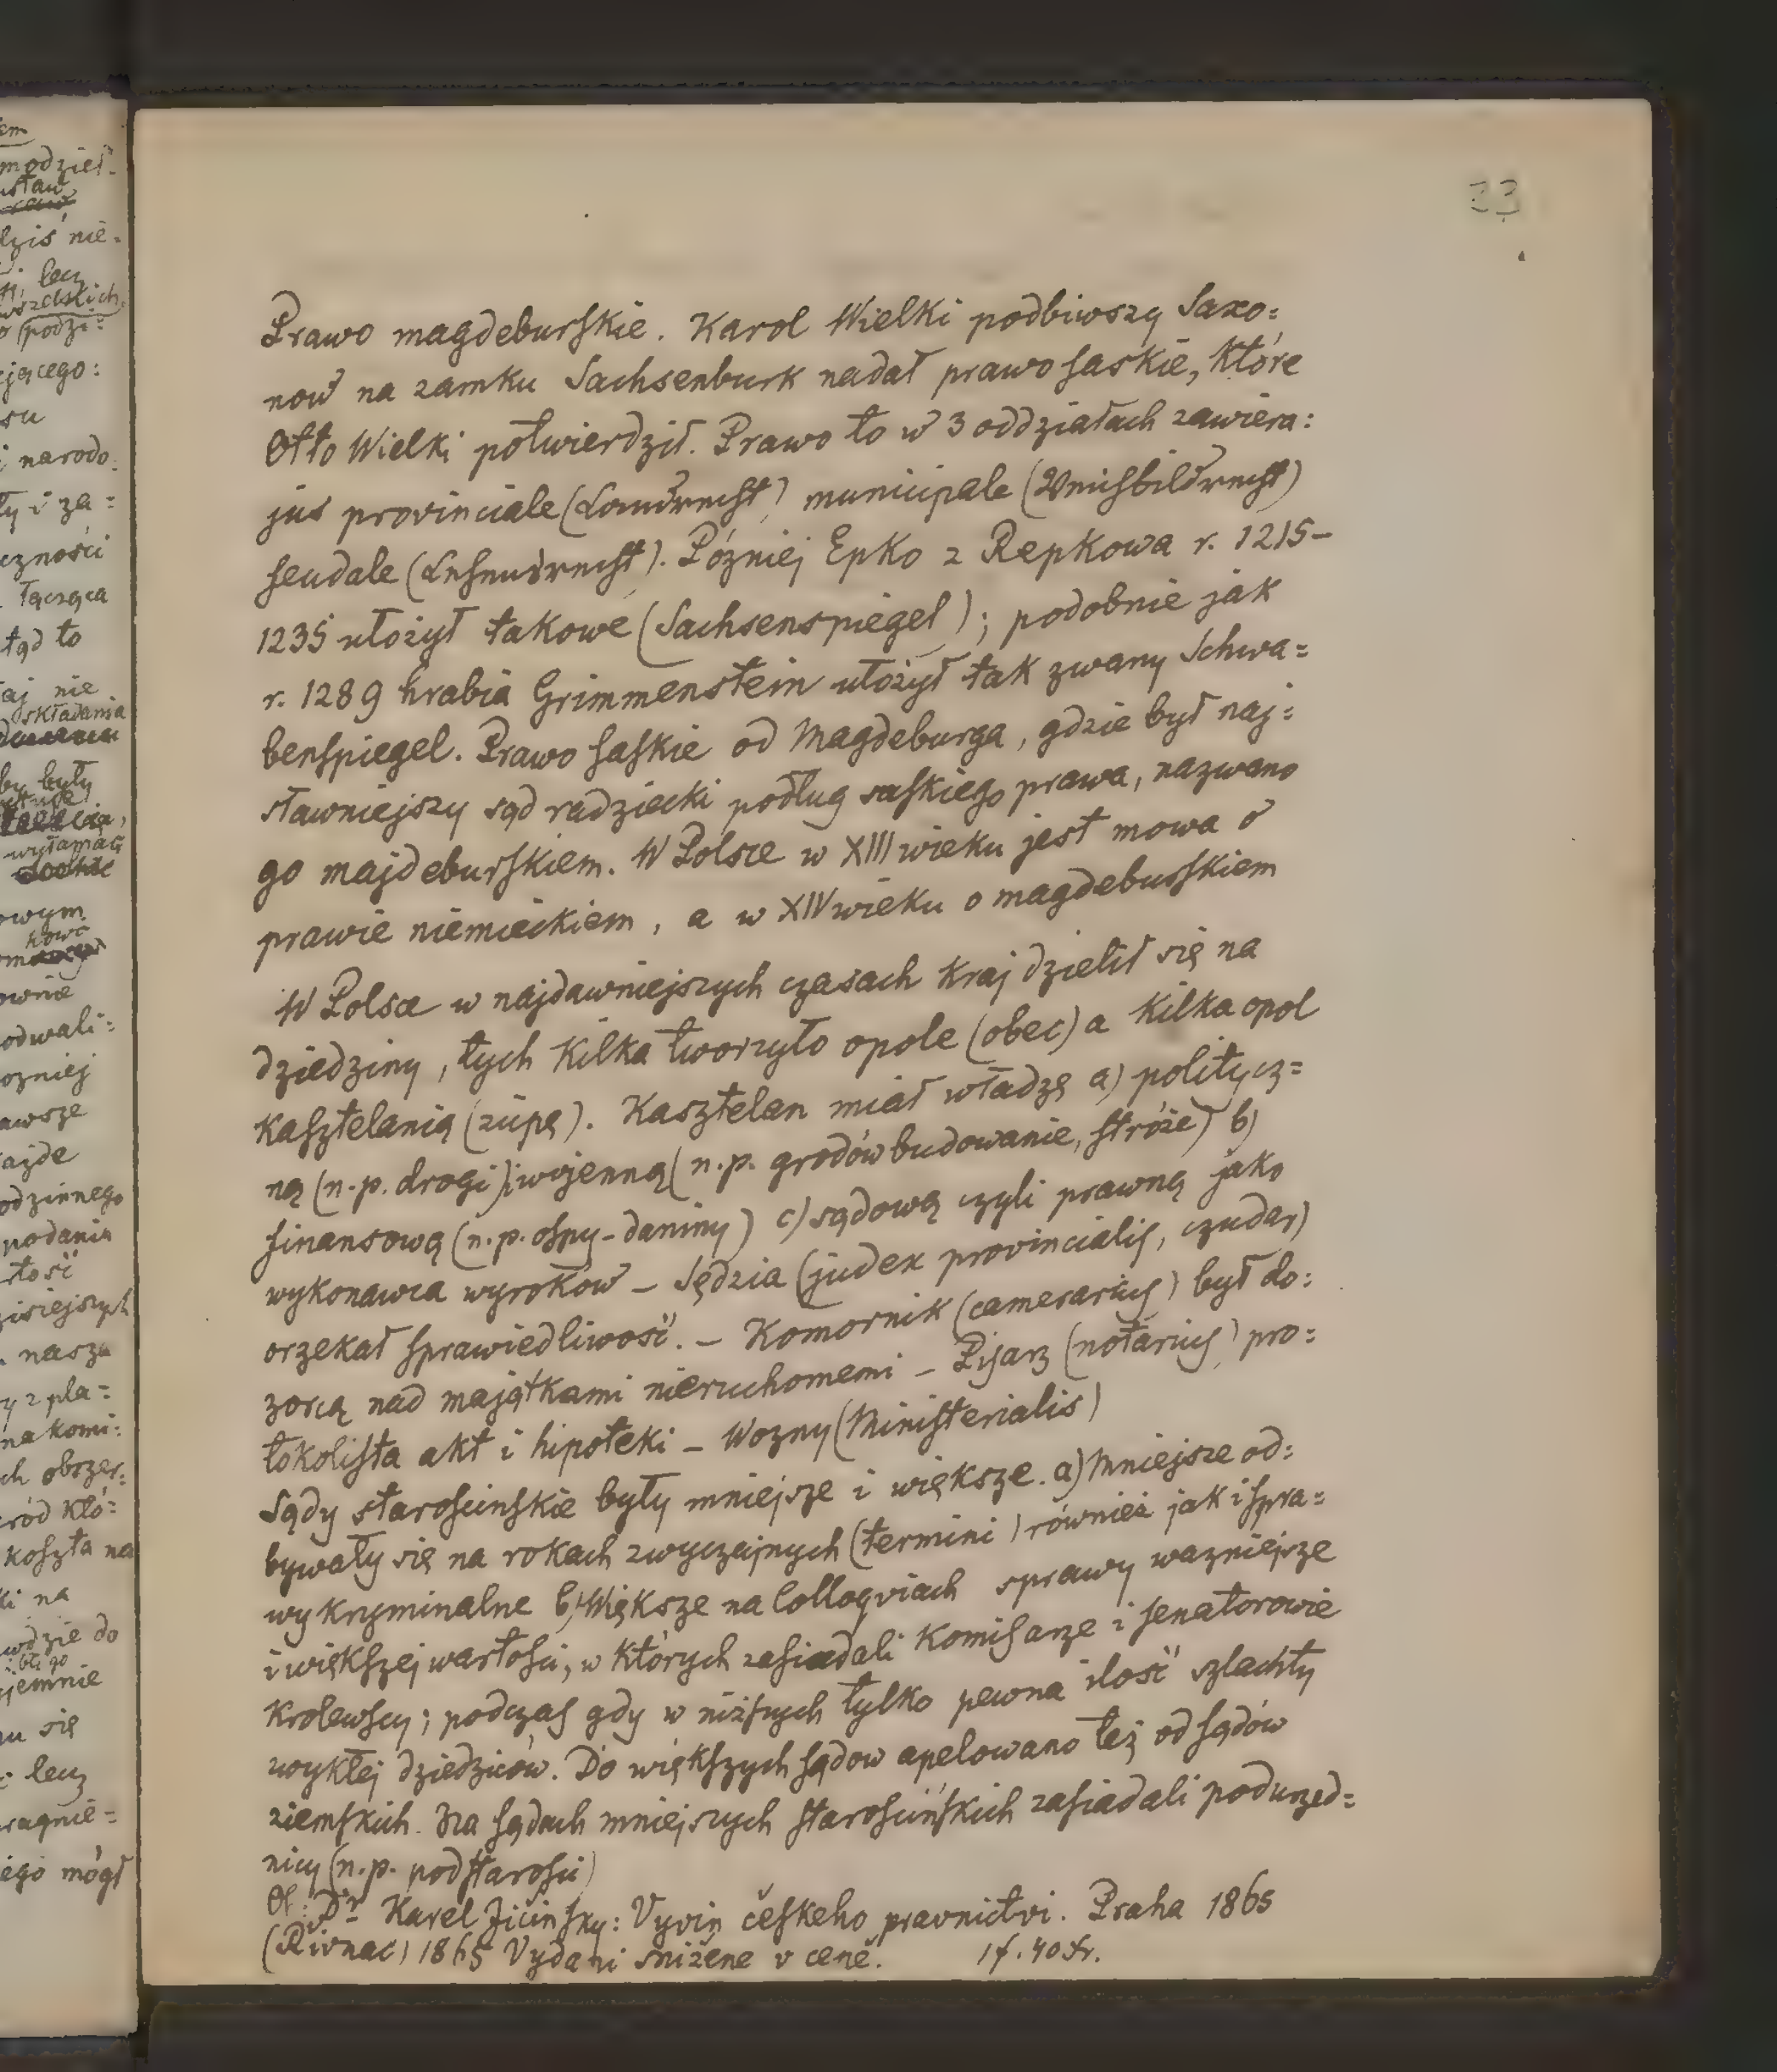 em
modzieł-
ustaw
dziś nie-
lecz
wszelkich
podzi=
ejącego:
su
i narodo:
ły i za=
czności
łącząca
tąd to
aj nie
składania
by były
wyłamać
owym
kowa
ownie
odwali=
ozniej
awsze
ajde
odzinnego
podania
tość
zisiejszych
nasza
y z pla=
nakomi:
ch obszer:
ród kłó=
koszta na
ki na
wdzie do
jemnie
nu się
lecz
ragnie=
ego mógł
23
Prawo magdeburskie. Karol Wielki podbiwszy Saxo=
now na zamku Sachsenburk nadał prawo saskie, które
Otto Wielki potwierdził. Prawo to w 3 oddziałach zawiera:
jus provinciale (Landrecht) municipale (Weichbildrecht)
feudale (Lehendrecht). Pózniej Epko z Repkowa r. 1215-
1235 ułożył takowe (Sachsenspiegel); podobnie jak
r. 1289 hrabia Grimmenstein ułożył tak zwany Schwa=
benspiegel. Prawo saskie od Magdeburga, gdzie był naj=
sławniejszy sąd radziecki podług saskiego prawa, nazwano
go majdeburskiem. W Polsce w XIII wieku jest mowa o
prawie niemieckiem, a w XIV wieku o magdeburskiem
W Polsce w najdawniejszych czasach kraj dzielił się na
dziedziny, tych kilka tworzyło opole (obec) a kilka opol
kasztelanią (zupę). Kasztelan miał władzę a) politycz=
ną (n.p. drogi) i wojenną (n.p. grodów budowanie, stróże) b)
finansową (n.p. ospy-daniny) c) sądową czyli prawną jako
wykonawca wyroków - Sędzia (judex provincialis, czudar)
orzekał sprawiedliwość. - Komornik (camerarius) był do:
zorcą nad majątkami nieruchomemi - Pisarz (notarius) pro=
tokolista akt i hipoteki - Wozny (Ministerialis)
Sądy starościnskie były mniejsze i większe. a) Mniejsze od:
bywały się na rokach zwyczajnych (termini) również jak i spra=
wy kryminalne b) Większe na Colloqviach sprawy wazniejsze
i większej wartości, w których zasiadali Komisarze i senatorowie
Krolewscy; podczas gdy w niższych tylko pewna ilość szlachty
zwykłej dziedziców. Do większych sądow apelowano też od sądów
ziemskich. Na sądach mniejszych starościńskich zasiadali podurzęd=
nicy (n.p. podstarości)
Of: Dr Karel Jičinsky: Vyvin českeho pravnictvi. Praha 1865
(Řivnač) 1865 Vydani snižene v ceně. 1f. 40 kr.